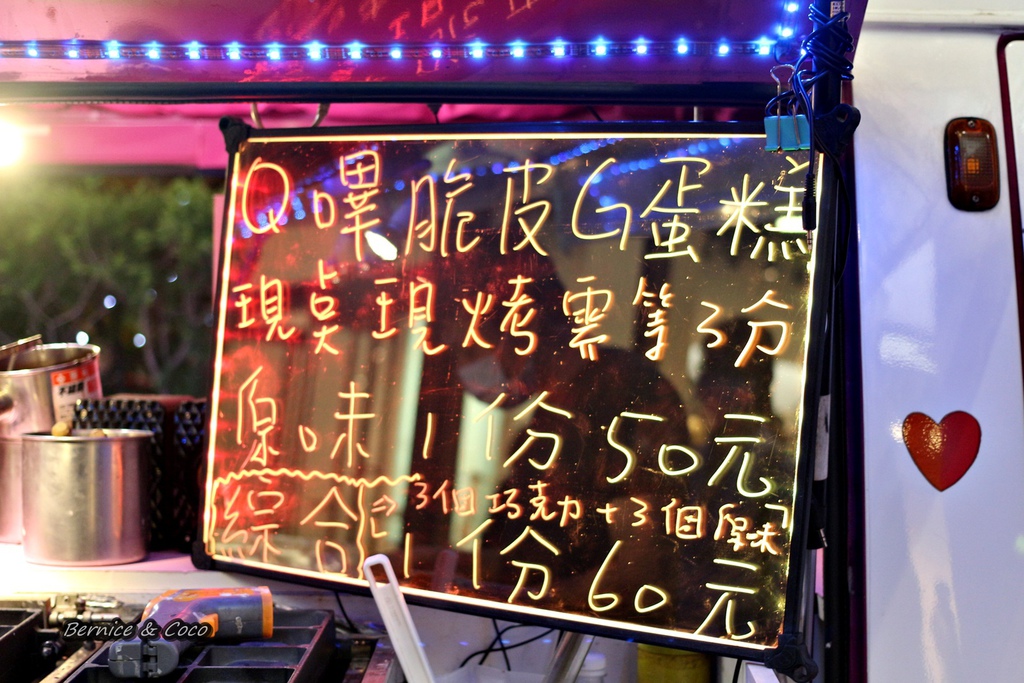 Q嗶脆皮G蛋糕
現點現烤需等3分
原味1份50元
綜合⇒3個巧克力+3個原味
1份60元
Bernice & Coco